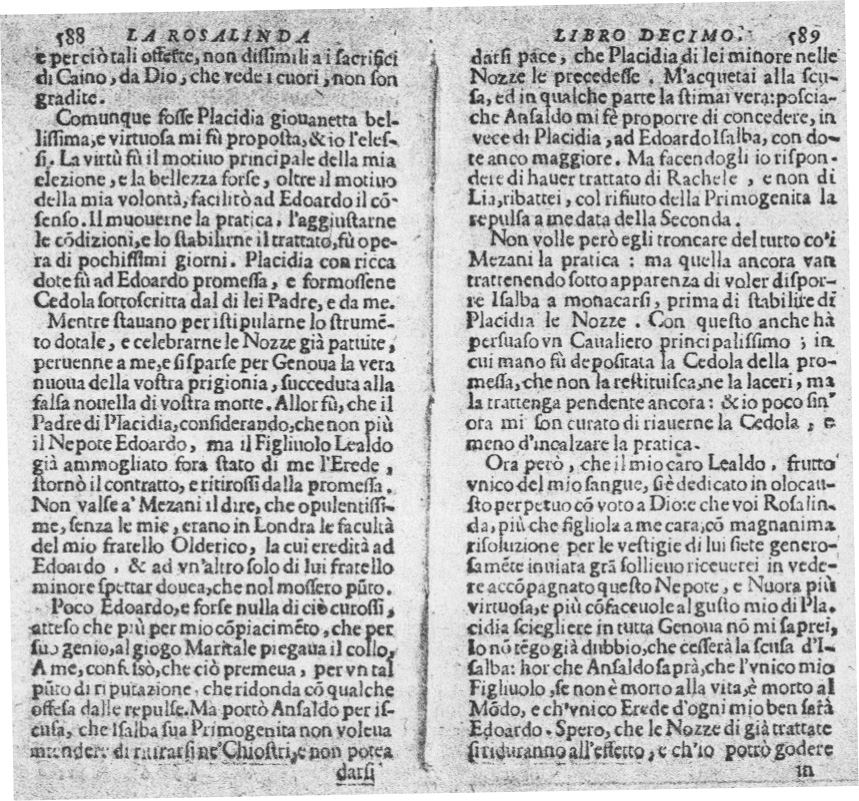 588 LA ROSALINDA
e perciò tali offerte, non dissimili a i sacrifici
di Caino, da Dio, che vede i cuori, non son
gradite.
Comunque fosse Placidia giouanetta bel-
lissima, e virtuosa mi fù proposta, & io l'eles-
si. La virtù fù il motiuo principale della mia
elezione, e la bellezza forse, oltre il motiuo
della mia volontà, facilitò ad Edoardo il cõ-
senso. Il muouerne la pratica, l'aggiustarne
le cõdizioni, e lo stabilirne il trattato, fù ope-
ra di pochissimi giorni. Placidia con ricca
dote fù ad Edoardo promessa, e formossene
Cedola sottoscritta dal di lei Padre, e da me.
Mentre stauano per istipularne lo strumẽ-
to dotale, e celebrarne le Nozze già pattuite,
peruenne a me, e si sparse per Genoua la vera
nuoua della vostra prigionia, succeduta alla
falsa nouella di vostra morte. Allor fù, che il
Padre di Placidia, considerando, che non più
il Nepote Edoardo, ma il Figliuolo Lealdo
già ammogliato fora stato di me l'Erede,
stornò il contratto, e ritirossi dalla promessa.
Non valse a' Mezani il dire, che opulentissi-
me, senza le mie, erano in Londra le facultà
del mio fratello Olderico, la cui eredità ad
Edoardo, & ad vn'altro solo di lui fratello
minore spettar douea, che nol mossero pũto.
Poco Edoardo, e forse nulla di ciò curossi,
atteso che più per mio cõpiacimẽto, che per
suo genio, al giogo Maritale piegaua il collo,
A me, confesso, che ciò premeua, per vn tal
pũto di riputazione, che ridonda cõ qualche
offesa dalle repulse. Ma portò Ansaldo per is-
cusa, che Isalba sua Primogenita non voleua
intendere di ritirarsi ne' Chiostri, e non potea
darsi
LIBRO DECIMO. 589
darsi pace, che Placidia di lei minore nelle
Nozze le precedesse. M'acquetai alla scu-
sa, ed in qualche parte la stimai vera: poscia-
che Ansaldo mi fè proporre di concedere, in
vece di Placidia, ad Edoardo Isalba, con do-
te anco maggiore. Ma facendogli io rispon-
dere di hauer trattato di Rachele, e non di
Lia, ribattei, col rifiuto della Primogenita la
repulsa a me data della Seconda.
Non volle però egli troncare del tutto co'i
Mezani la pratica: ma quella ancora van
trattenendo sotto apparenza di voler dispor-
re Isalba a monacarsi, prima di stabilire di
Placidia le Nozze. Con questo anche hà
persuaso vn Caualiero principalissimo, in
cui mano fù depositata la Cedola della pro-
messa, che non la restituisca, ne la laceri, ma
la trattenga pendente ancora: & io poco sin'
ora mi son curato di riauerne la Cedola, e
meno d'incalzare la pratica.
Ora però, che il mio caro Lealdo, frutto
vnico del mio sangue, si è dedicato in olocau-
sto perpetuo cõ voto a Dio: e che voi Rosalin-
da, più che figliola a me cara, cõ magnanima
risoluzione per le vestigie di lui siete genero-
samẽte inuiata grã sollieuo riceuerei in vede-
re accõpagnato questo Nepote, e Nuora più
virtuosa, e più cõfaceuole al gusto mio di Pla.
cidia sciegliere in tutta Genoua nõ mi saprei,
Io nõ tẽgo già dubbio, che cesserà la scusa d'I-
salba: hor che Ansaldo saprà, che l'vnico mio
Figliuolo, se non è morto alla vita, è morto al
Mõdo, e ch'vnico Erede d'ogni mio ben sarà
Edoardo. Spero, che le Nozze di già trattate
si riduranno all'effetto, e ch'io potrò godere
in